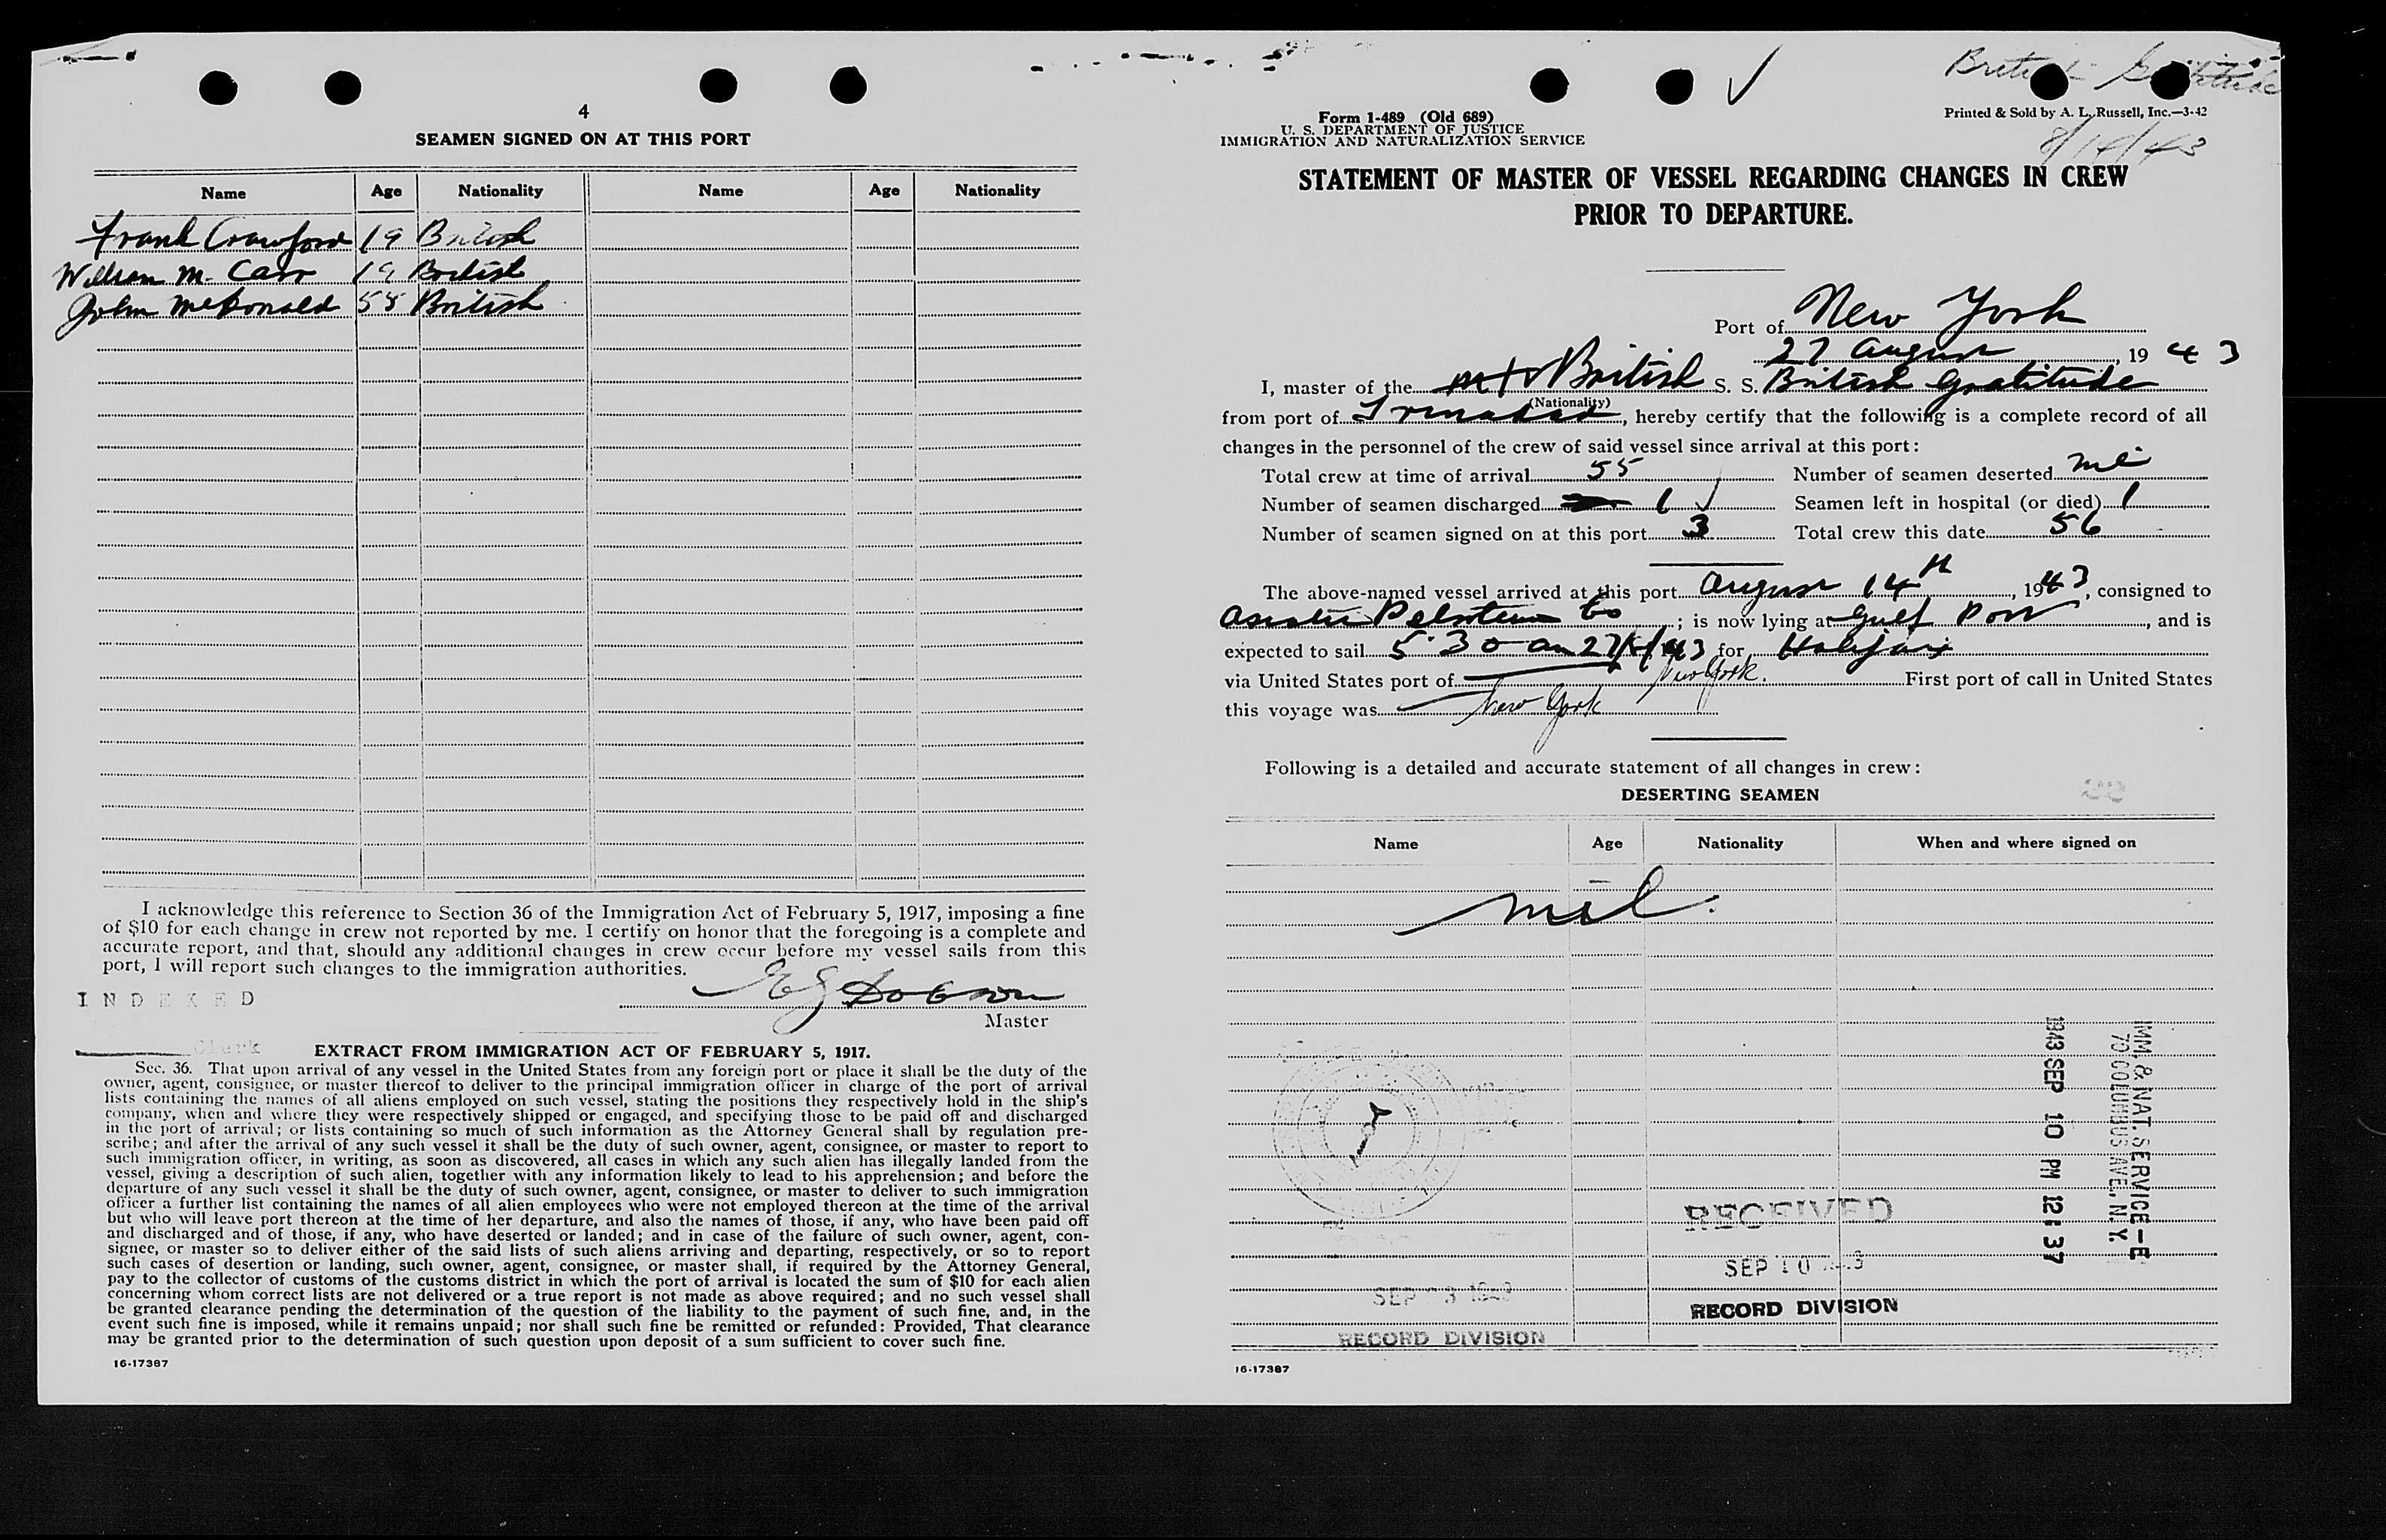 4
SEAMEN SIGNED ON AT THIS PORT
Name Age Nationality Name Age Nationality
Frank Crawford 19 British
William M. Carr 19 British
John McDonald 55 British
I acknowledge this reference to Section 36 of the Immigration Act of February 5, 1917, imposing a fine
of $10 for each change in crew not reported by me. I certify on honor that the foregoing is a complete and
accurate report, and that, should any additional changes in crew occur before my vessel sails from this
port, I will report such changes to the immigration authorities.
INDEXED
Master
Clerk
EXTRACT FROM IMMIGRATION ACT OF FEBRUARY 5, 1917.
Sec. 36. That upon arrival of any vessel in the United States from any foreign port or place it shall be the duty of the
owner, agent, consignee, or master thereof to deliver to the principal immigration officer in charge of the port of arrival
lists containing the names of all aliens employed on such vessel, stating the positions they respectively hold in the ship's
company, when and where they were respectively shipped or engaged, and specifying those to be paid off and discharged
in the port of arrival; or lists containing so much of such information as the Attorney General shall by regulation pre-
scribe; and after the arrival of any such vessel it shall be the duty of such owner, agent, consignee, or master to report to
such immigration officer, in writing, as soon as discovered, all cases in which any such alien has illegally landed from the
vessel, giving a description of such alien, together with any information likely to lead to his apprehension; and before the
departure of any such vessel it shall be the duty of such owner, agent, consignee, or master to deliver to such immigration
officer a further list containing the names of all alien employees who were not employed thereon at the time of the arrival
but who will leave port thereon at the time of her departure, and also the names of those, if any, who have been paid off
and discharged and of those, if any, who have deserted or landed; and in case of the failure of such owner, agent, con-
signee, or master so to deliver either of the said lists of such aliens arriving and departing, respectively, or so to report
such cases of desertion or landing, such owner, agent, consignee, or master shall, if required by the Attorney General,
pay to the collector of customs of the customs district in which the port of arrival is located the sum of $10 for each alien
concerning whom correct lists are not delivered or a true report is not made as above required; and no such vessel shall
be granted clearance pending the determination of the question of the liability to the payment of such fine, and, in the
event such fine is imposed, while it remains unpaid; nor shall such fine be remitted or refunded: Provided, That clearance
may be granted prior to the determination of such question upon deposit of a sum sufficient to cover such fine.
16-17387
British Gratitude
Form 1-489 (Old 689)
U. S. DEPARTMENT OF JUSTICE
IMMIGRATION AND NATURALIZATION SERVICE
Printed & Sold by A. L. Russell, Inc.—3-42
8/14/43
STATEMENT OF MASTER OF VESSEL REGARDING CHANGES IN CREW
PRIOR TO DEPARTURE.
Port of New York
27 August, 19 43
I, master of the British S. S. British Gratitude
(Nationality)
from port of Trinidad, hereby certify that the following is a complete record of all
changes in the personnel of the crew of said vessel since arrival at this port:
Total crew at time of arrival 55 Number of seamen deserted nil
Number of seamen discharged 1 Seamen left in hospital (or died) 1
Number of seamen signed on at this port 3 Total crew this date 56
The above-named vessel arrived at this port August 14th, 1943, consigned to
Asiatic Petroleum Co; is now lying at Gulf Port, and is
expected to sail 5.30 am 27/8/43 for Halifax
via United States port of New York. First port of call in United States
this voyage was New York
Following is a detailed and accurate statement of all changes in crew:
DESERTING SEAMEN
Name Age Nationality When and where signed on
nil.
IMM. & NAT. SERVICE—E
70 COLUMBUS AVE., N.Y.
1943 SEP 10 PM 12:37
RECEIVED
SEP 10 1943
RECORD DIVISION
SEP 3 1943
RECORD DIVISION
16-17387